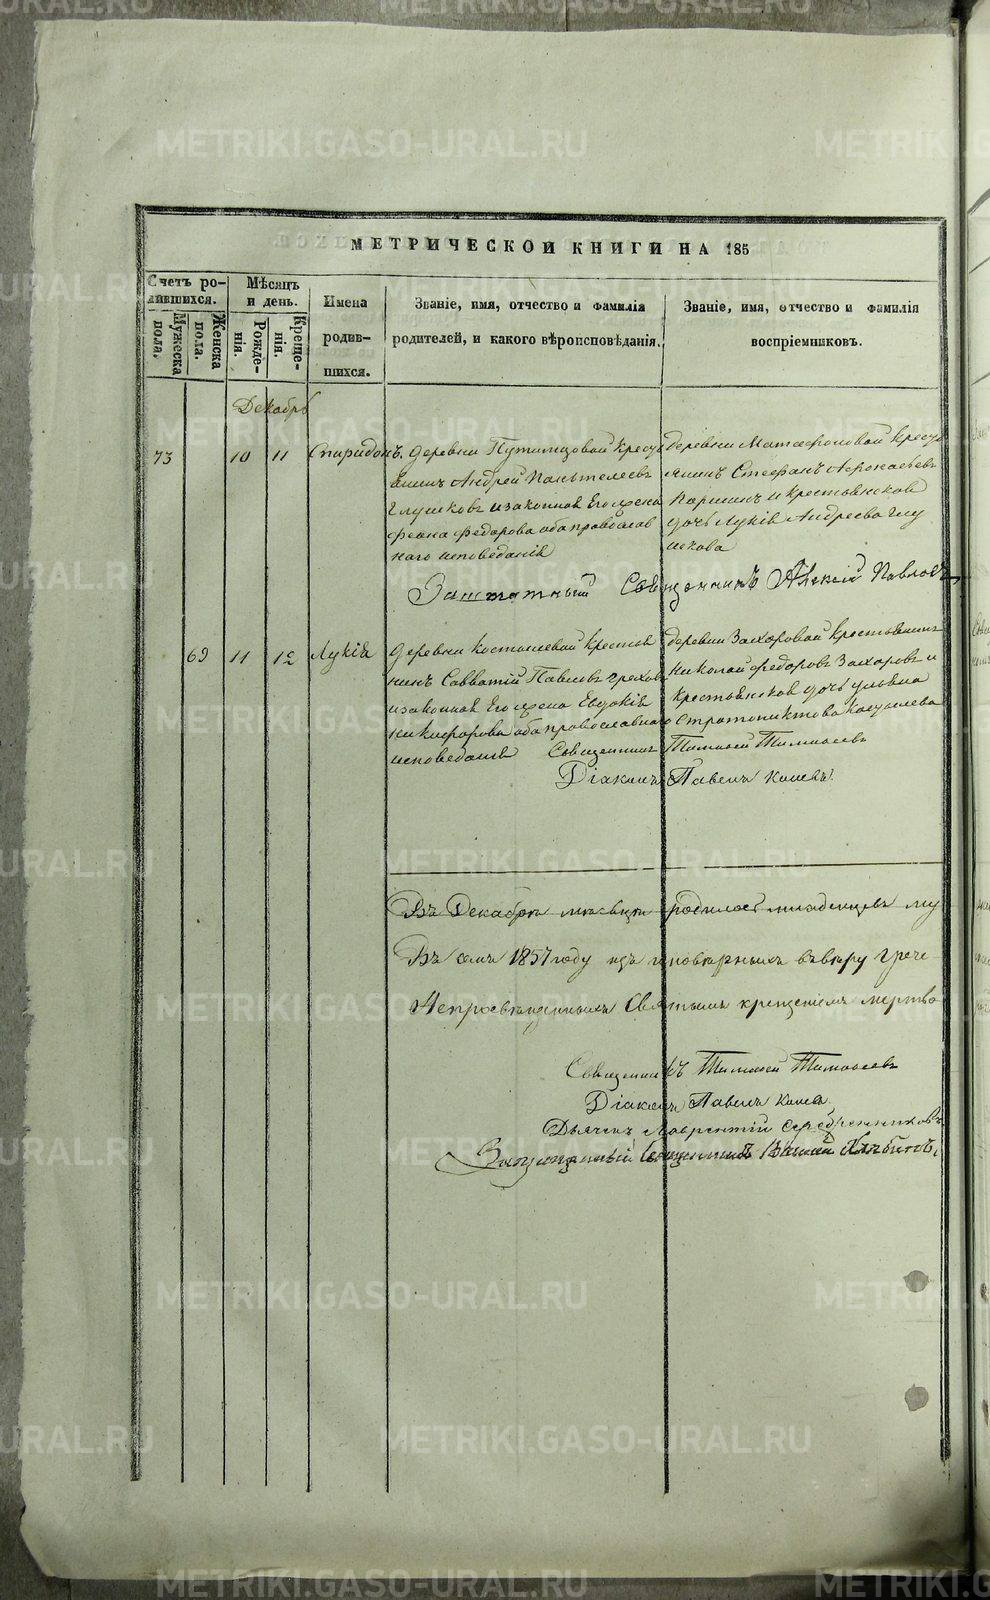 МЕТРИЧЕСКОЙ КНИГИ НА 185
Счетъ ро-
дившихся.
Мужеска
пола.
Женска
пола.
Мѣсяцъ
и день.
Рожде-
нія.
Креще-
нія.
Имена
родив-
шихся.
Званіе, имя, отчество и фамилія
родителей, и какого вѣроисповѣданія.
Званіе, имя, отчество и фамилія
воспріемниковъ.
Декабрь
73 10 11 Спиридонъ
деревни Путимцовой Крестья
нинъ Андрей Пантелеевъ
Глушковъ изаконная Его жена
Феодорова оба православ
наго исповеданія
деревни Матафоновой Кресть
янинъ Стефанъ
и крестьянская
дочь Лукія Андреева Глу
шкова
Заштатный Священникъ Алексій Павловъ
69 11 12 Лукія
деревни Крестья
нинъ Савватій Павловъ Греховъ
изаконная Его жена Евдокія
Никифорова оба православнаго
исповеданія
деревни Захаровой Крестьянинъ
Николай Федоровъ Захаровъ и
крестьянская дочь Ульяна
Стратониктова
Священникъ Тимофей Тимофеевъ
Діаконъ Павелъ
Въ Декабре месяце родилось младенцевъ му
Въ семъ 1857 году изъ иноверныхъ въ веру Грече
Непросвещенныхъ Святымъ крещеніемъ мертво
Священникъ Тимофей Тимофеевъ
Діаконъ Павелъ
Дьячекъ Лаврентій Серебренниковъ
METRIKI.GASO-URAL.RU